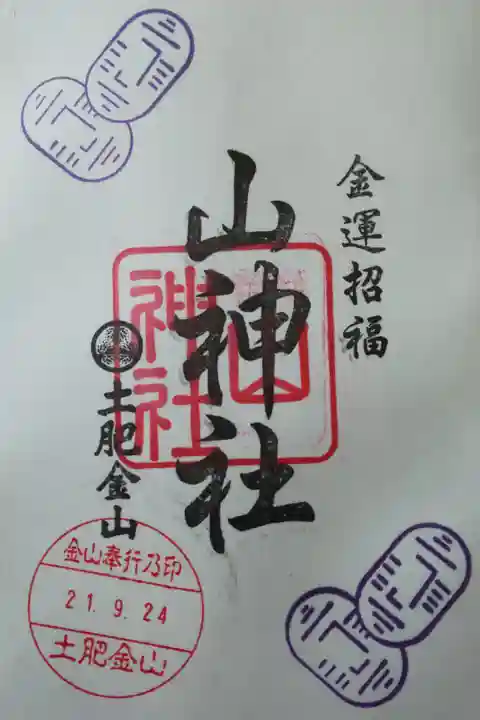 金運招福
山神社
山神社
土肥金山
金山奉行乃印
21.9.24
土肥金山